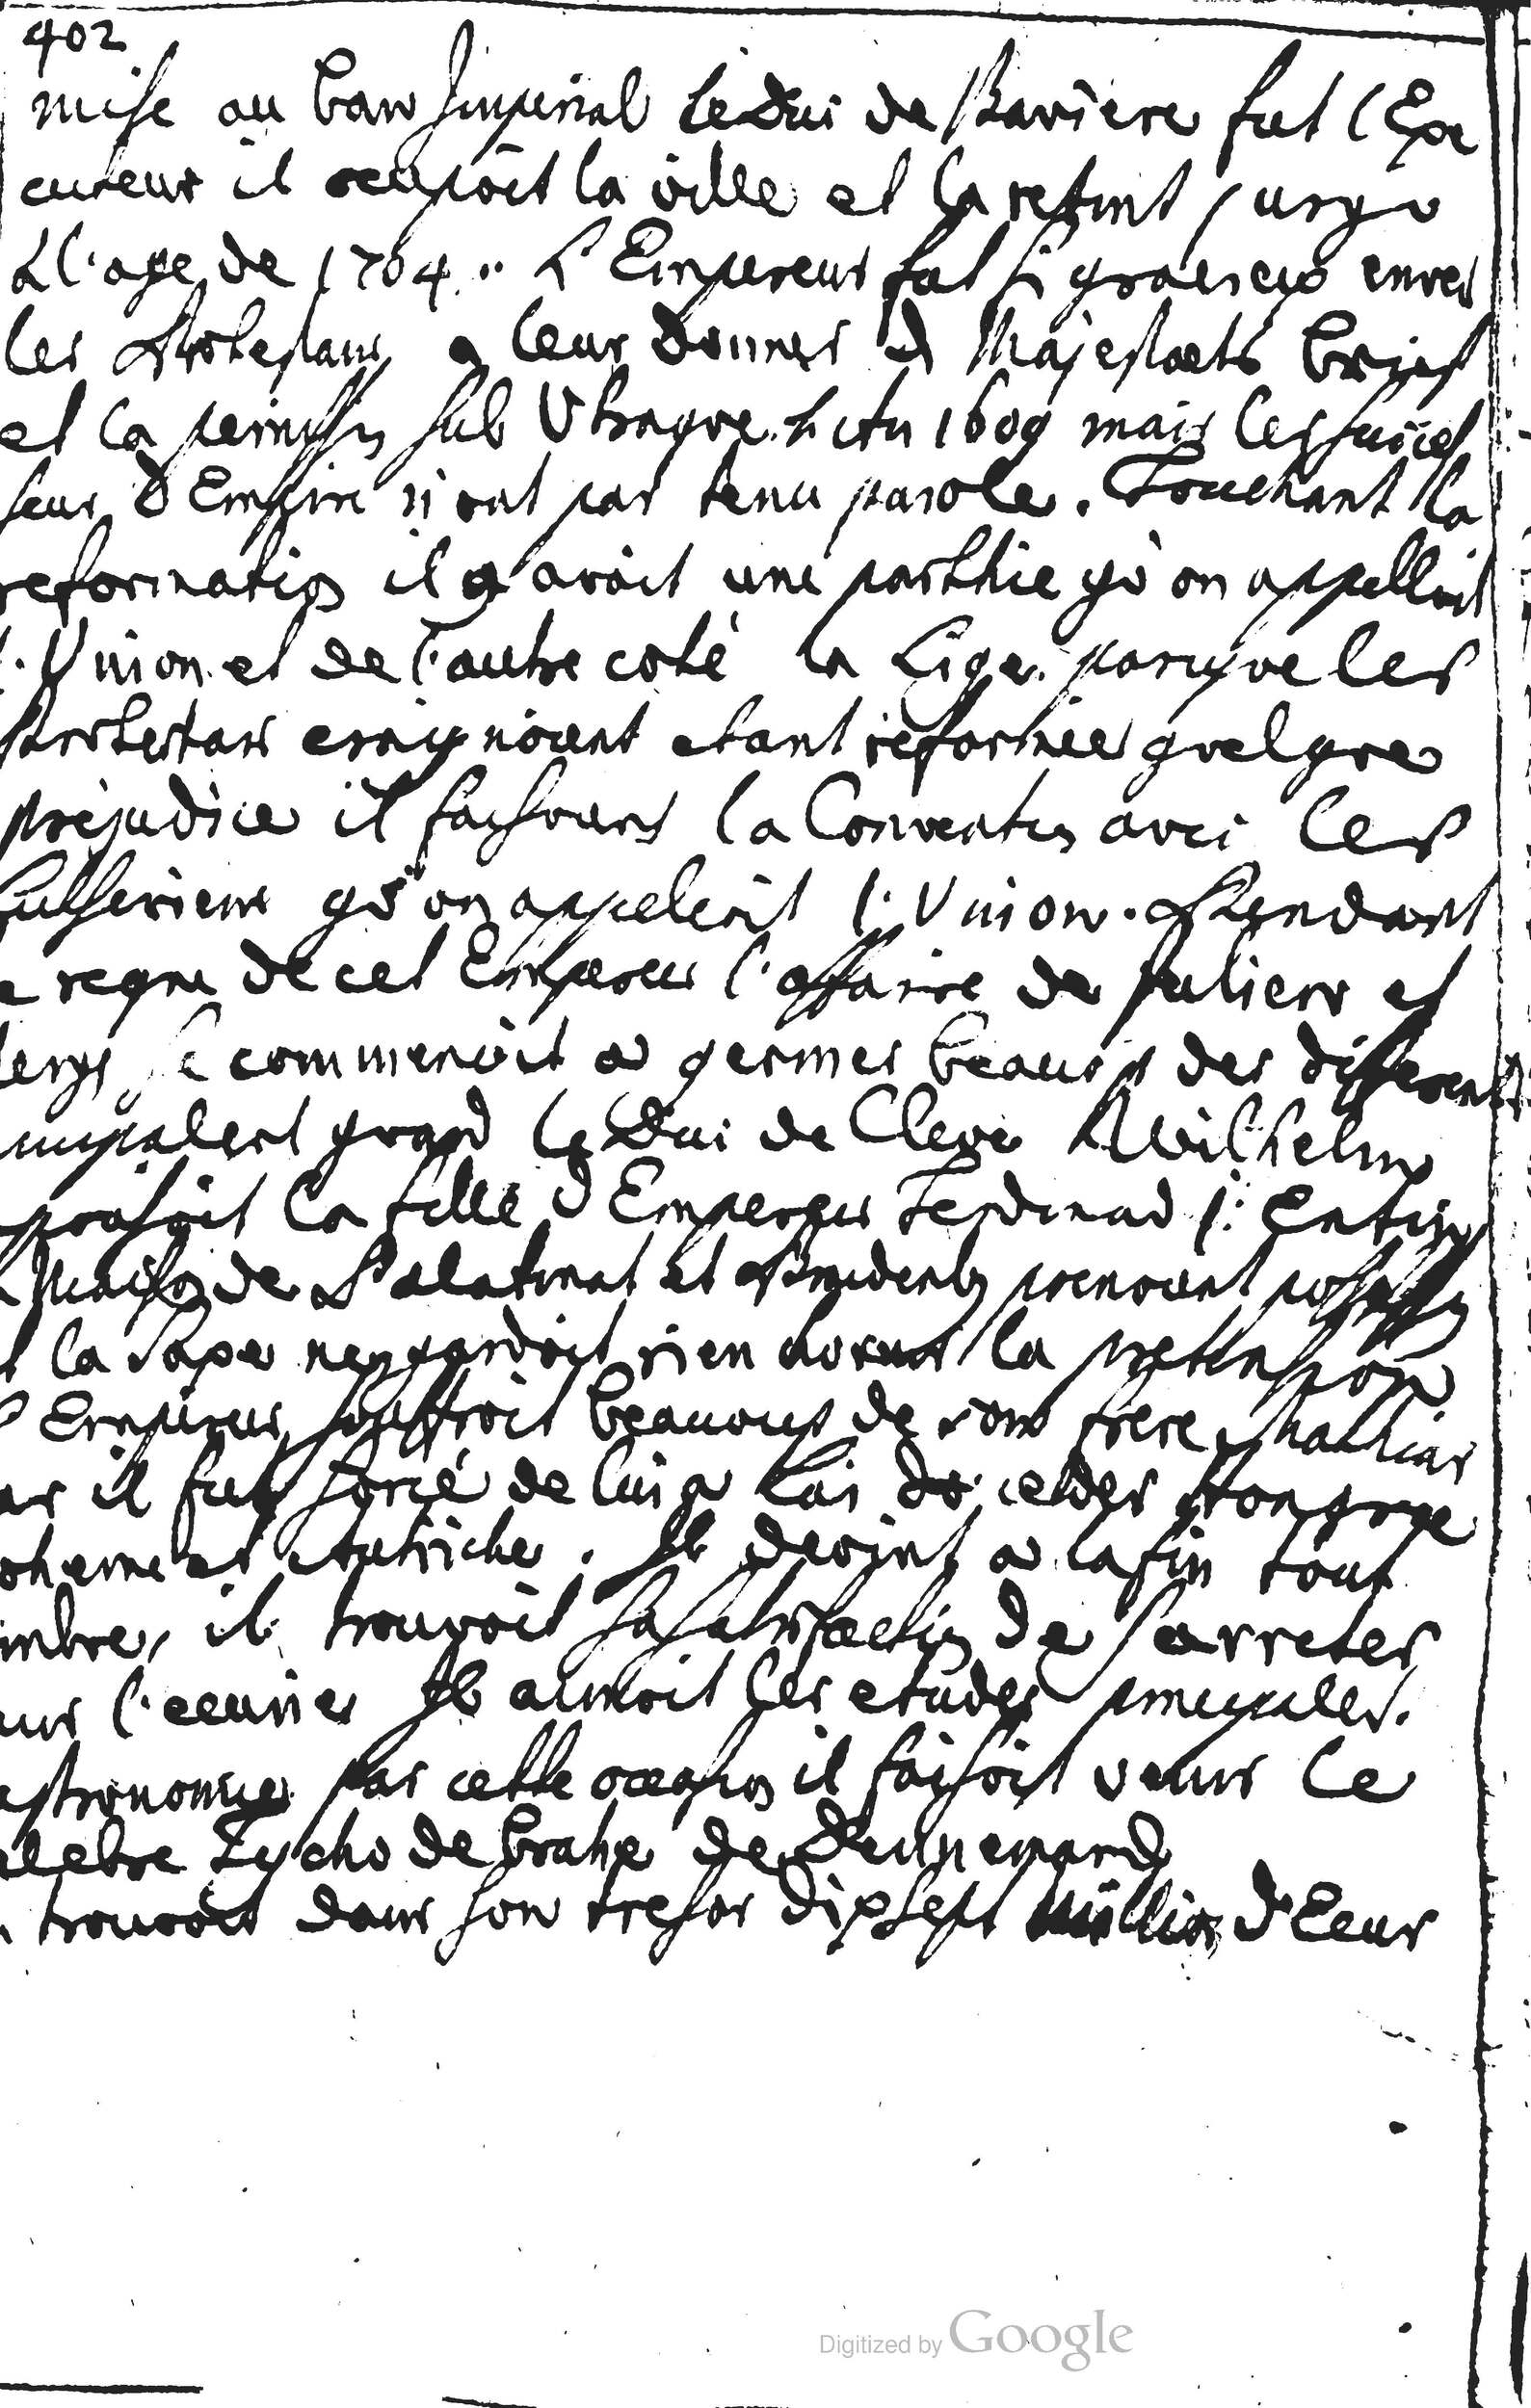 402
mise au ban Imperial le Duc de Baviere fut l'Exe
cuteur il occupoit la ville et la retint jusqu
à l'age de 1704. L'Empereur fut si gracieux envers
les Protestans a leur donner d Majestæts brief
et la permissn sub Utraque. l'An 1609 mais les succes
seur d'Empire n'ont pas tenu parole. Touchant la
reformation il y avoit une parthie qu'on appelloit
l'Union et de l'autre coté la Lige. parceque les
Protestans craignoient etant reformée quelque
prejudice il faisoient la Conventn avec les
Lutheriens qu'on appeloit l'Union. Pendant
e regne de cet Empereur l'affaire de Juliers et
se commencoit a germer beaucoup des differents
grand le Duc de Cleve Wilhelm
pousoit la fille d'Empereur Ferdinad I. Entin
Maison de Palatinat et prenoient possessn
la Sape ne gardoit rien la pretension
Empereur souffroit beaucoup de son frere Matthias
ar il fut forcé de luy a ceder Hongrye
oheme et Autriche. Il devint a la fin tout
ombre, il trouvoit sa satisfaction de s'arreter
ur l'ecurie Il aimoit les etudes principales.
astronomie par cette occasion il faisoit venir le
elebre Tycho de Brahe de Dennemarck
trouvoit dans son tresor dixsept Million d'Eeur
Digitized by Google